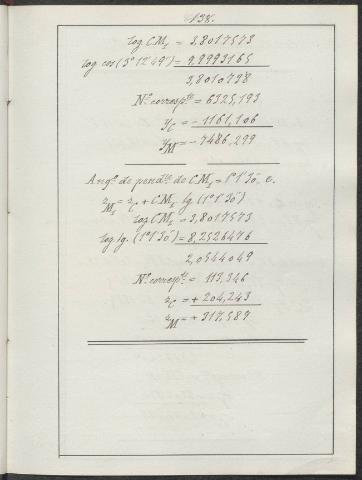 138.
log CM₁ = 3,8017573
log cos (3° 12' 49") = 9,9993165
3,8010738
N.º corresp.te = 6325,193
y_C = - 1161,106
y_M = - 7486,299
Ang.º de pend.te do CM₁ = 1° 1' 30", e.
z_M₁ = z_C + CM₁ tg. (1° 1' 30")
log CM₁ = 3,8017573
log. tg. (1° 1' 30") = 8,2526476
2,0544049
N.º corresp.te = 113,346
z_C = + 204,243
z_M = + 317,589